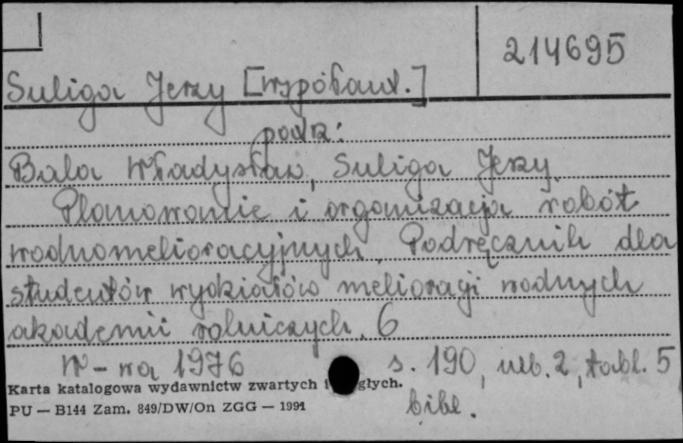 214695
Suliga Jerzy [współaut.]
podz:
Bala Władysław, Suliga Jerzy
Planowanie i organizacja robót
wodnomelioracyjnych. Podręcznik dla
studentów wydziałów melioracji wodnych
akademii rolniczych. 6
W-wa 1976 s. 190, nlb. 2, tabl. 5
bibl.
Karta katalogowa wydawnictw zwartych i głych.
PU — B144 Zam. 849/DW/On ZGG — 1991